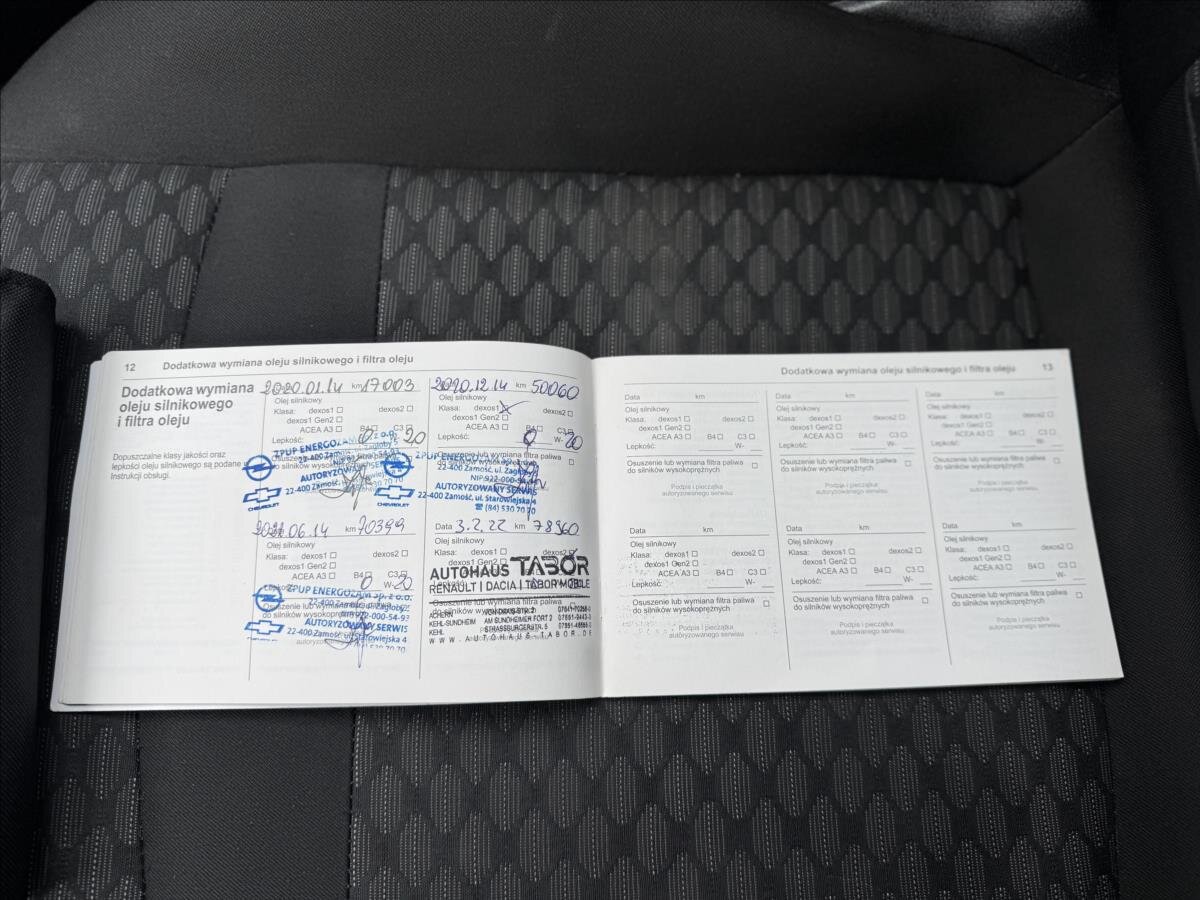 12 Dodatkowa wymiana oleju silnikowego i filtra oleju
Dodatkowa wymiana
oleju silnikowego
i filtra oleju
Dopuszczalne klasy jakości oraz
lepkości oleju silnikowego są podane
Instrukcji obsługi.
2020.01.14 km 17003
Olej silnikowy
Klasa: dexos1 dexos2
dexos1 Gen2
ACEA A3 B4 C3
Lepkość: 0 W- 20
ZPUP ENERGOZAM sp. z o.o.
22-400 Zamość, ul. Zagłoby
AUTORYZOWANY SERWIS
22-400 Zamość,
CHEVROLET
2020.12.14 km 50060
Olej silnikowy
Klasa: dexos1 dexos2
dexos1 Gen2
ACEA A3 B4 C3
Lepkość: 0 W- 20
ZPUP ENERGOZAM
22-400 Zamość, ul. Zagłoby
NIP 922-000-54-93
AUTORYZOWANY SERWIS
22-400 Zamość, ul. Starowiejska 4
☎ (84) 530 70 70
CHEVROLET
06.14 km 70399
Olej silnikowy
Klasa: dexos1 dexos2
dexos1 Gen2
ACEA A3 B4 C3
Lepkość: 0 W- 20
ZPUP ENERGOZAM sp. z o.o.
22-400 Zamość, ul. Zagłoby
AUTORYZOWANY SERWIS
22-400 Zamość, ul. Starowiejska 4
Data 3.2.22 km 78960
Olej silnikowy
Klasa: dexos1 dexos2
dexos1 Gen2
AUTOHAUS TABOR
RENAULT | DACIA | TABOR MOBILE
Osuszenie lub wymiana filtra paliwa
ACHERN
KEHL-SUNDHEIM AM SUNDHEIMER FORT 2
KEHL STRASSBURGERSTR. 5
WWW.AUTOHAUS-TABOR.DE
Dodatkowa wymiana oleju silnikowego i filtra oleju 13
Data km
Olej silnikowy
Klasa: dexos1 dexos2
dexos1 Gen2
ACEA A3 B4 C3
Lepkość: W-
Osuszenie lub wymiana filtra paliwa
do silników wysokoprężnych
Podpis i pieczątka
autoryzowanego serwisu
Data km
Olej silnikowy
Klasa: dexos1 dexos2
dexos1 Gen2
ACEA A3 B4 C3
Lepkość: W-
Osuszenie lub wymiana filtra paliwa
do silników wysokoprężnych
Podpis i pieczątka
autoryzowanego serwisu
Data km
Olej silnikowy
Klasa: dexos1 dexos2
dexos1 Gen2
ACEA A3 B4 C3
Lepkość: W-
Osuszenie lub wymiana filtra paliwa
do silników wysokoprężnych
Podpis i pieczątka
autoryzowanego serwisu
Data km
Olej silnikowy
Klasa: dexos1 dexos2
dexos1 Gen2
ACEA A3 B4 C3
Lepkość: W-
Osuszenie lub wymiana filtra paliwa
do silników wysokoprężnych
Podpis i pieczątka
autoryzowanego serwisu
Data km
Olej silnikowy
Klasa: dexos1 dexos2
dexos1 Gen2
ACEA A3 B4 C3
Lepkość: W-
Osuszenie lub wymiana filtra paliwa
do silników wysokoprężnych
Podpis i pieczątka
autoryzowanego serwisu
Data km
Olej silnikowy
Klasa: dexos1 dexos2
dexos1 Gen2
ACEA A3 B4 C3
Lepkość: W-
Osuszenie lub wymiana filtra paliwa
do silników wysokoprężnych
Podpis i pieczątka
autoryzowanego serwisu